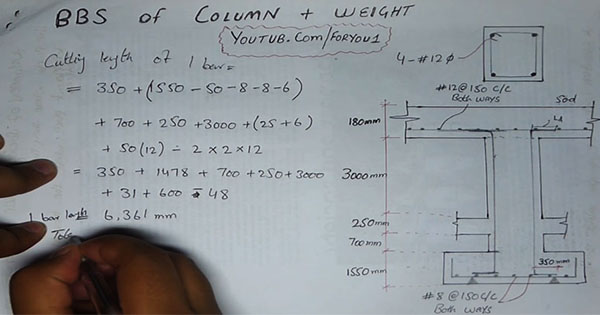 BBS of COLUMN + WEIGHT
YOUTUB.COM/FORYOU1
Cutting length of 1 bar =
= 350 + (1550 - 50 - 8 - 8 - 6)
+ 700 + 250 + 3000 + (25 + 6)
+ 50(12) - 2 x 2 x 12
= 350 + 1478 + 700 + 250 + 3000
+ 31 + 600 - 48
1 bar length 6,361 mm
4 - #12 ϕ
#12 @ 150 c/c
Both ways
180mm
3000mm
250mm
700mm
1550mm
350mm
#8 @ 150 c/c
Both ways